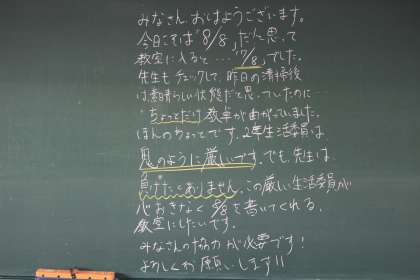 みなさん、おはようございます。
今日こそは「8/8」だ!と思って
教室に入ると…「7/8」でした。
先生もチェックして、昨日の清掃後
は素晴らしい状態だと思っていたのに…
ちょっとだけ教卓が曲がっていました。
ほんのちょっとです。2年生活委員は
鬼のように厳しいです。でも、先生は
負けたくありません。この厳しい生活委員が
心おきなく8/8を書いてくれる、
教室にしたいです。
みなさんの協力が必要です!
よろしくお願いします!!